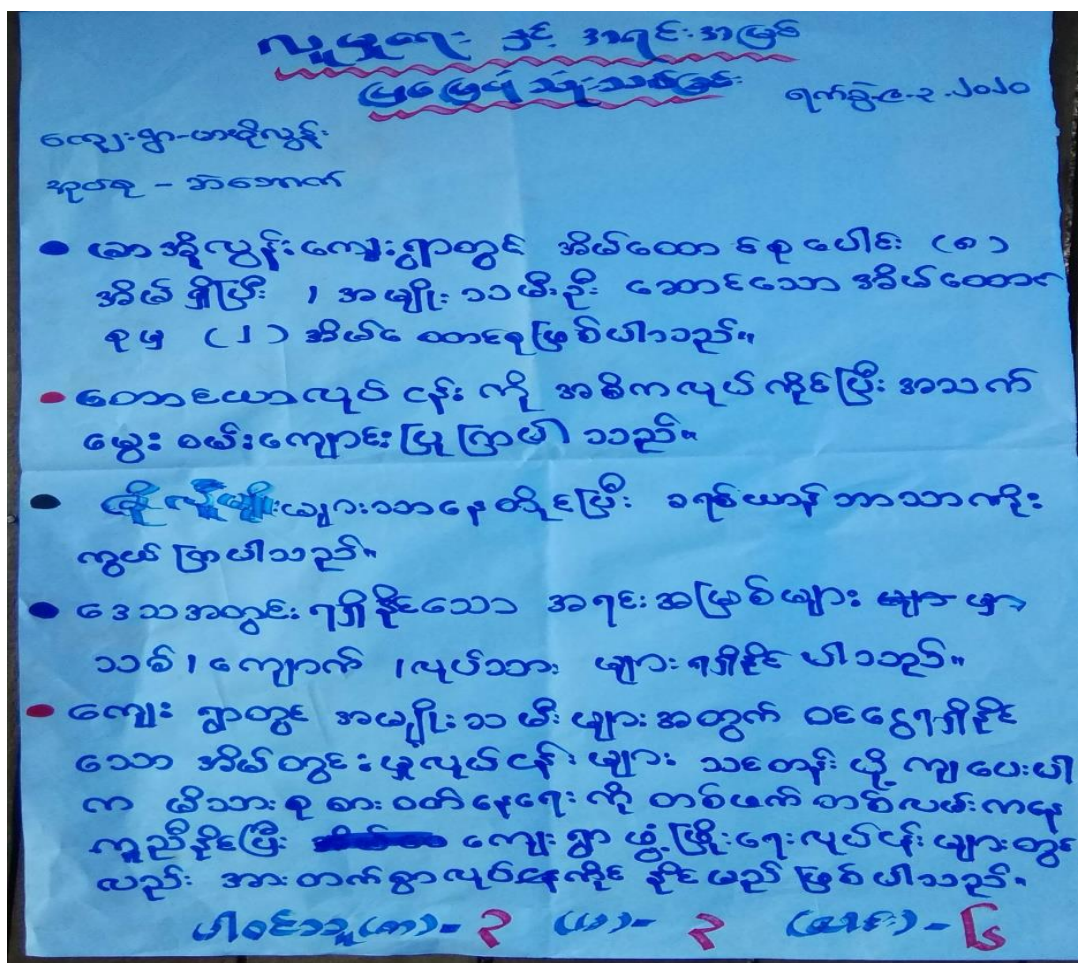 လူမှုရေး နှင့် အရင်းအမြစ်
ပြမြေပုံ သုံးသပ်ခြင်း ရက်စွဲ-၉.၃.၂၀၂၀
ကျေးရွာ-ဟာထိုလွန်း
အုပ်စု - အဲအောက်
• ဟာအိုလွန်းကျေးရွာတွင် အိမ်ထောင်စုပေါင်း (၈)
အိမ် ရှိပြီး ၊ အမျိုးသမီးဦး ဆောင်သော အိမ်ထောင်
စုမှ (၂) အိမ်ထောင်စုဖြစ်ပါသည်။
• တောင်ယာလုပ် ငန်း ကို အဓိကလုပ် ကိုင်ပြီး အသက်
မွေး ဝမ်းကျောင်း ပြု ကြပါ သည်။
• ချိုလူမျိုးများသာနေထိုင်ပြီး ခရစ်ယာန် ဘာသာကိုး
ကွယ် ကြပါသည်။
• ဒေသအတွင်း ရရှိနိုင်သော အရင်းအမြစ်များ မှာ
သစ် ၊ ကျောက် ၊ လုပ်သား များ ရရှိနိုင် ပါသည်။
• ကျေး ရွာတွင် အမျိုးသမီး များအတွက် ဝင်ငွေရရှိနိုင်
သော အိမ်တွင်းမှုလုပ်ငန်း များ သင်တန်း ပို့ ကျပေးပါ
က မိသားစု စား ဝတ်နေရေး ကို တစ်ဖက် တစ်လမ်းကနေ
ကူညီနိုင်ပြီး ကျေးရွာ ဖွံ့ဖြိုးရေးလုပ်ငန်း များတွင်
လည်း အားတက်စွာလုပ်ကိုင် နိုင်မည် ဖြစ်ပါသည်။
ပါဝင်သူ(ကျား)- ၃ (မ)- ၃ (ပေါင်း) - ၆